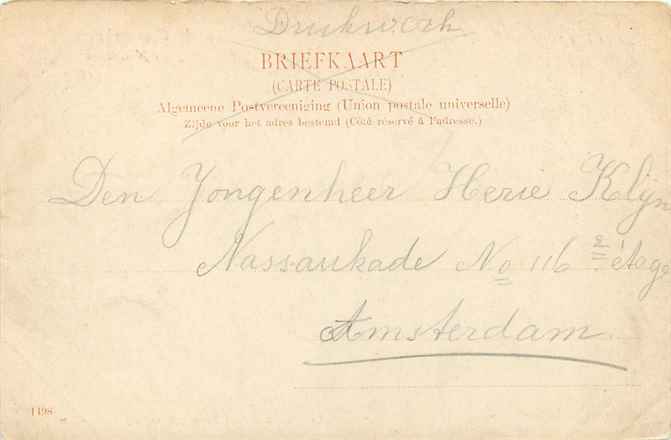 Drukwerk
BRIEFKAART
(CARTE POSTALE)
Algemeene Postvereeniging (Union postale universelle)
Zijde voor het adres bestemd (Côté réservé à l'adresse.)
Den Jongenheer Herie Klijn
Nassaukade No 116 2 étage
Amsterdam.
1498